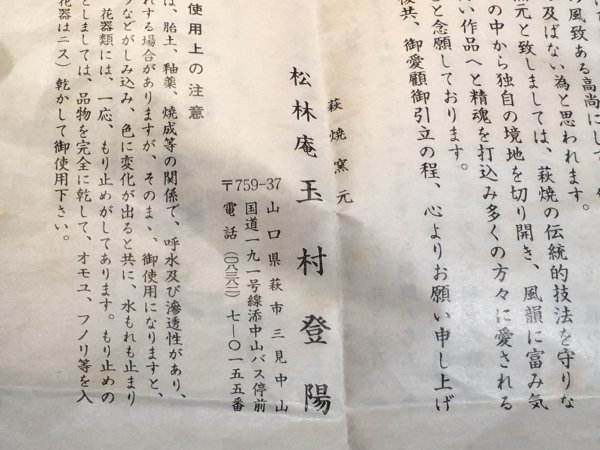 の風致ある高尚にして
の及ばない為と思われます。
窯元と致しましては、萩焼の伝統的技法を守りな
の中から独自の境地を切り開き、風韻に富み気
い作品へと精魂を打込み多くの方々に愛される
と念願しております。
後共、御愛顧御引立の程、心よりお願い申し上げ
萩焼窯元
松林庵 玉村登陽
〒759-37 山口県萩市三見中山
国道一九一号線添中山バス停前
電話(〇八三八二)七—〇一五五番
使用上の注意
は、胎土、釉薬、焼成等の関係で、呼水及び滲透性があり、
れする場合がありますが、そのまゝ、御使用になりますと、
などがしみ込み、色に変化が出ると共に、水もれも止まり
花器類には、一応、もり止めがしてあります。もり止めの
としましては、品物を完全に乾して、オモユ、フノリ等を入
花器はニス)乾かして御使用下さい。